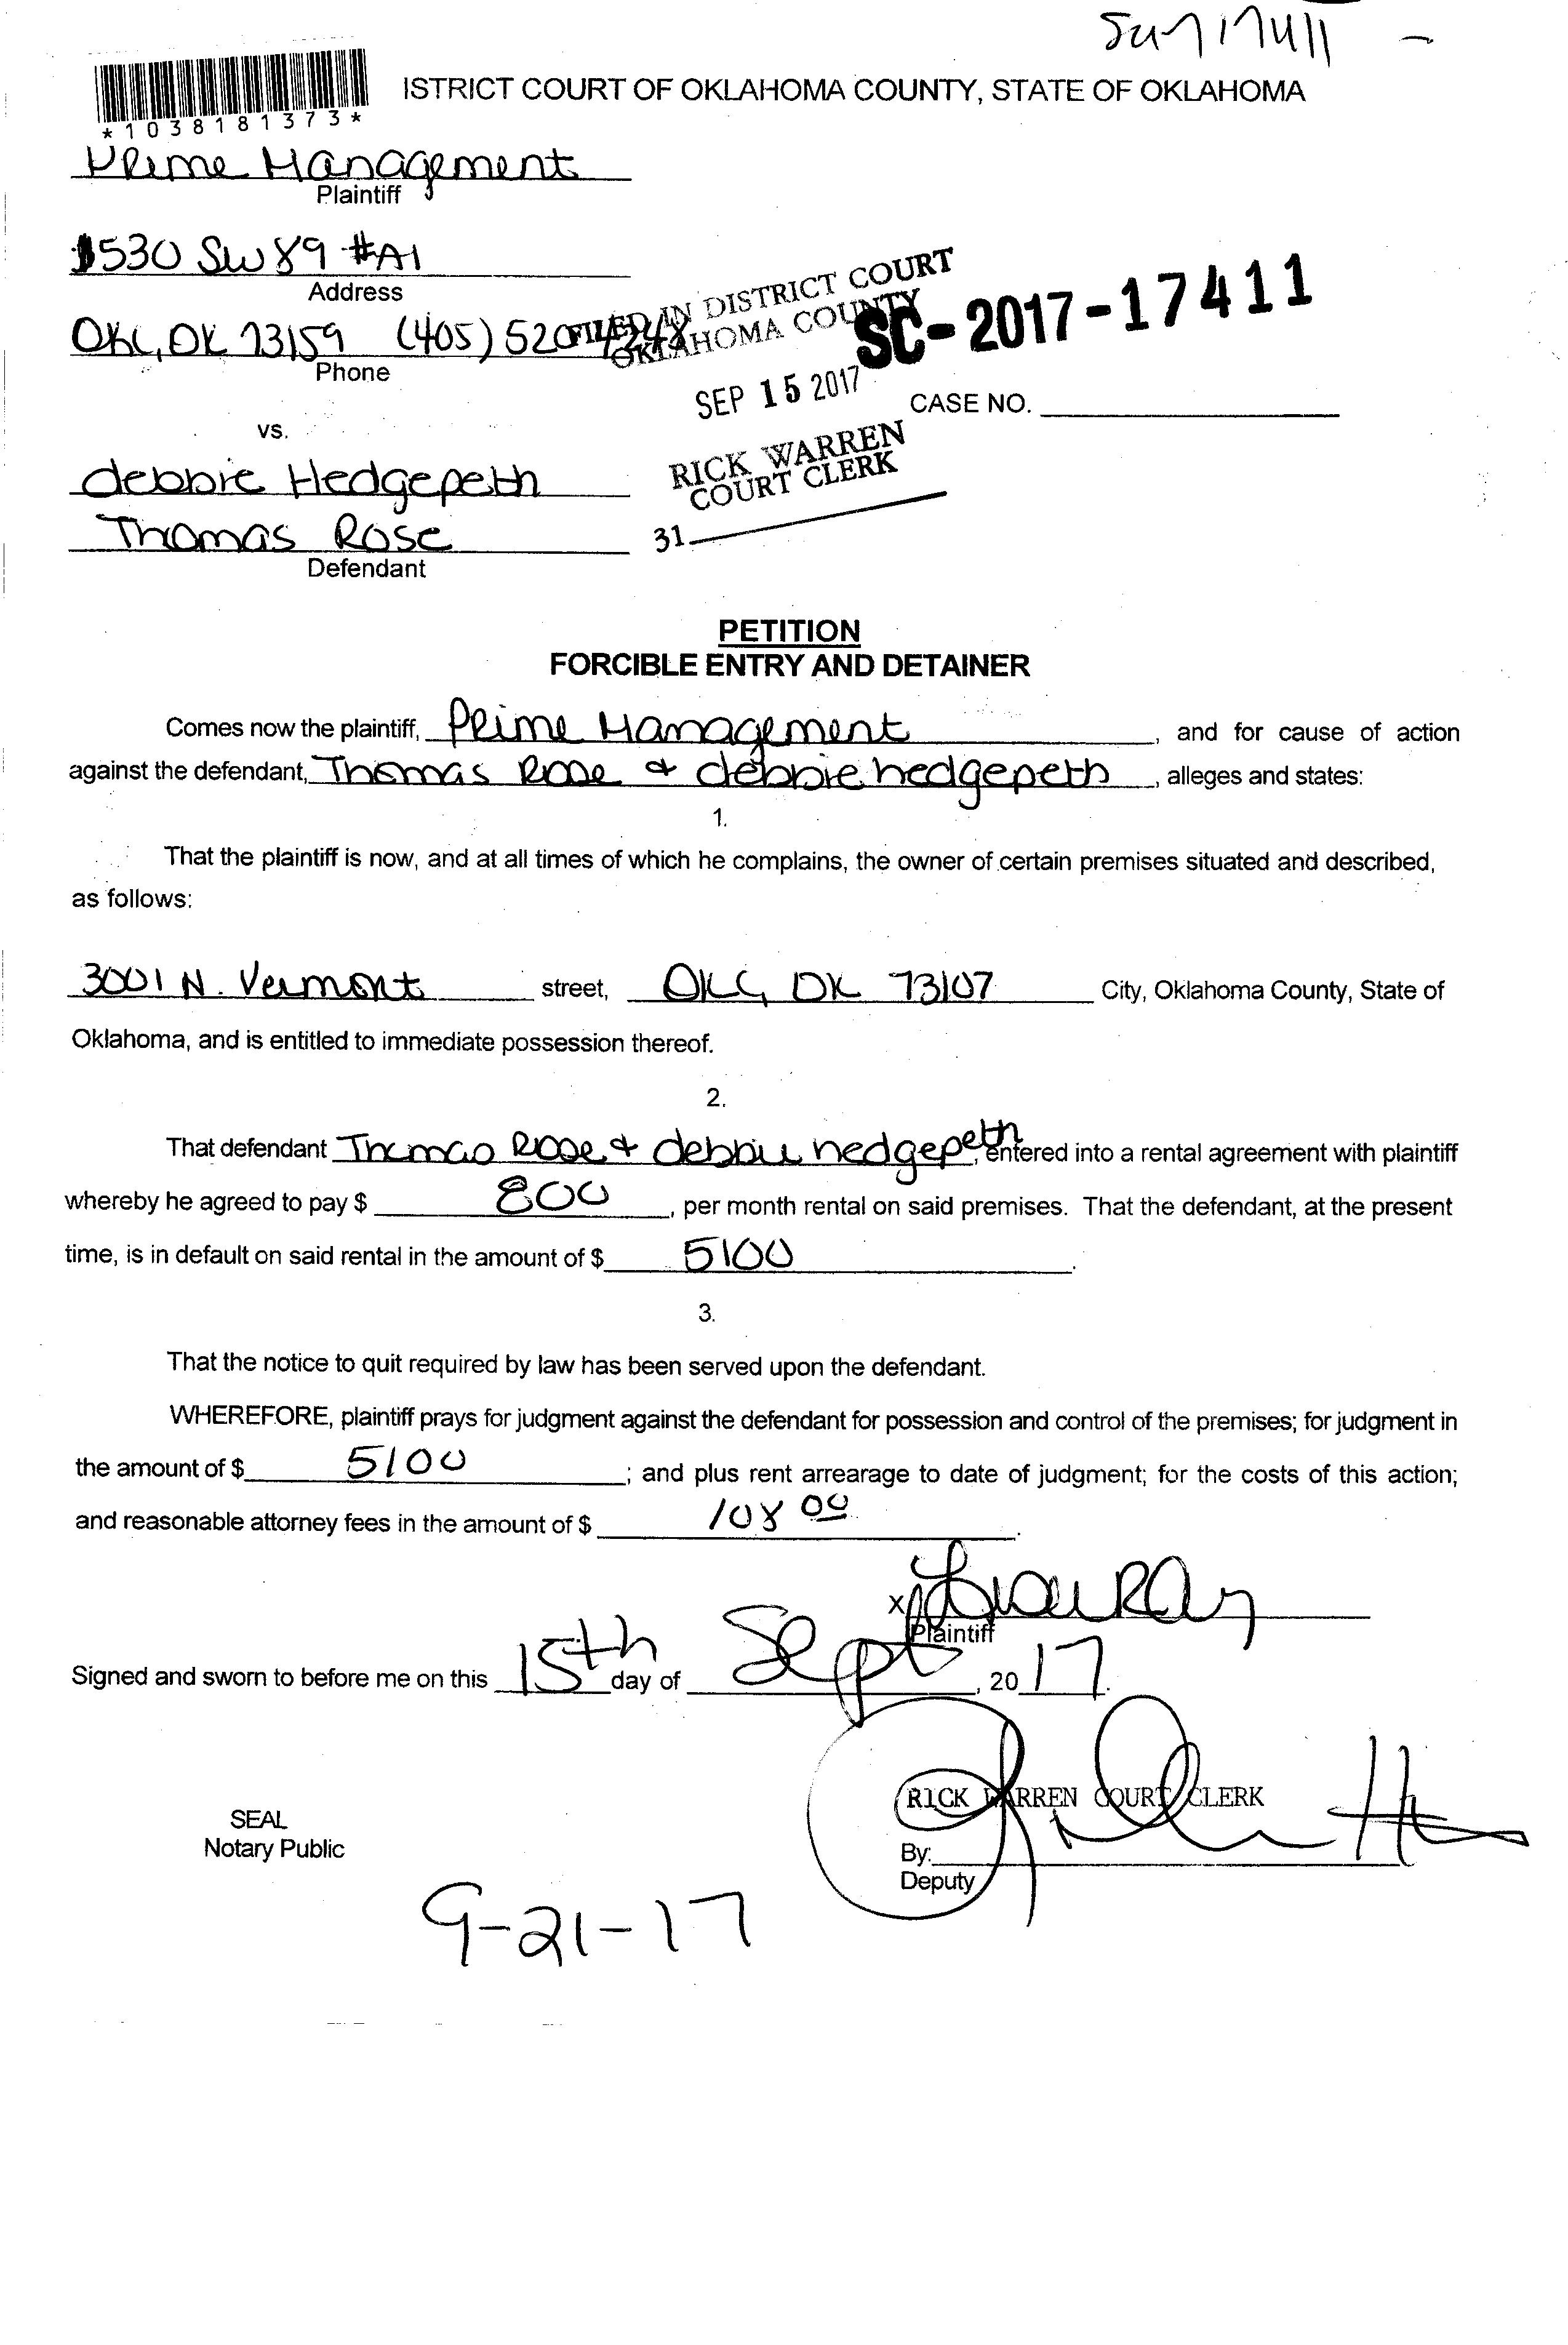 ISTRICT COURT OF OKLAHOMA COUNTY, STATE OF OKLAHOMA
*1038181373*
Prime Management
Plaintiff
1530 SW 89 #A1
Address
OKC, OK 73159 (405) 520
Phone
FILED IN DISTRICT COURT
OKLAHOMA COUNTY
SC-2017-17411
SEP 15 2017
CASE NO.
RICK WARREN
COURT CLERK
31
vs.
debbie Hedgepeth
Thomas Rose
Defendant
PETITION
FORCIBLE ENTRY AND DETAINER
Comes now the plaintiff, Prime Management, and for cause of action
against the defendant, Thomas Rose & debbie hedgepeth, alleges and states:
1.
That the plaintiff is now, and at all times of which he complains, the owner of certain premises situated and described,
as follows:
3001 N. Vermont street, OKC, OK 73107 City, Oklahoma County, State of
Oklahoma, and is entitled to immediate possession thereof.
2.
That defendant Thomas Rose & debbie hedgepeth, entered into a rental agreement with plaintiff
whereby he agreed to pay $ 800, per month rental on said premises. That the defendant, at the present
time, is in default on said rental in the amount of $ 5100.
3.
That the notice to quit required by law has been served upon the defendant.
WHEREFORE, plaintiff prays for judgment against the defendant for possession and control of the premises; for judgment in
the amount of $ 5100; and plus rent arrearage to date of judgment; for the costs of this action;
and reasonable attorney fees in the amount of $ 108 00.
X
Plaintiff
Signed and sworn to before me on this 15th day of Sept, 2017.
RICK WARREN COURT CLERK
SEAL
Notary Public
By:
Deputy
9-21-17